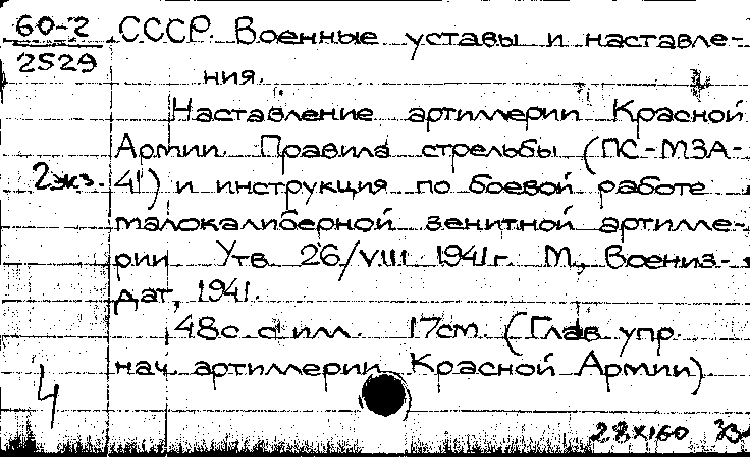 60-2 СССР. Военные уставы и наставле-
2529
ния.
Наставление артиллерии Красной
Армии. Правила стрельбы (ПС-МЗА-
2 экз. 41) и инструкция по боевой работе
малокалиберной зенитной артилле-
рии. Утв. 26/VIII 1941г. М., Воениз-
дат, 1941.
48с. с илл. 17см. (Глав. упр.
нач. артиллерии Красной Армии).
4
28X160